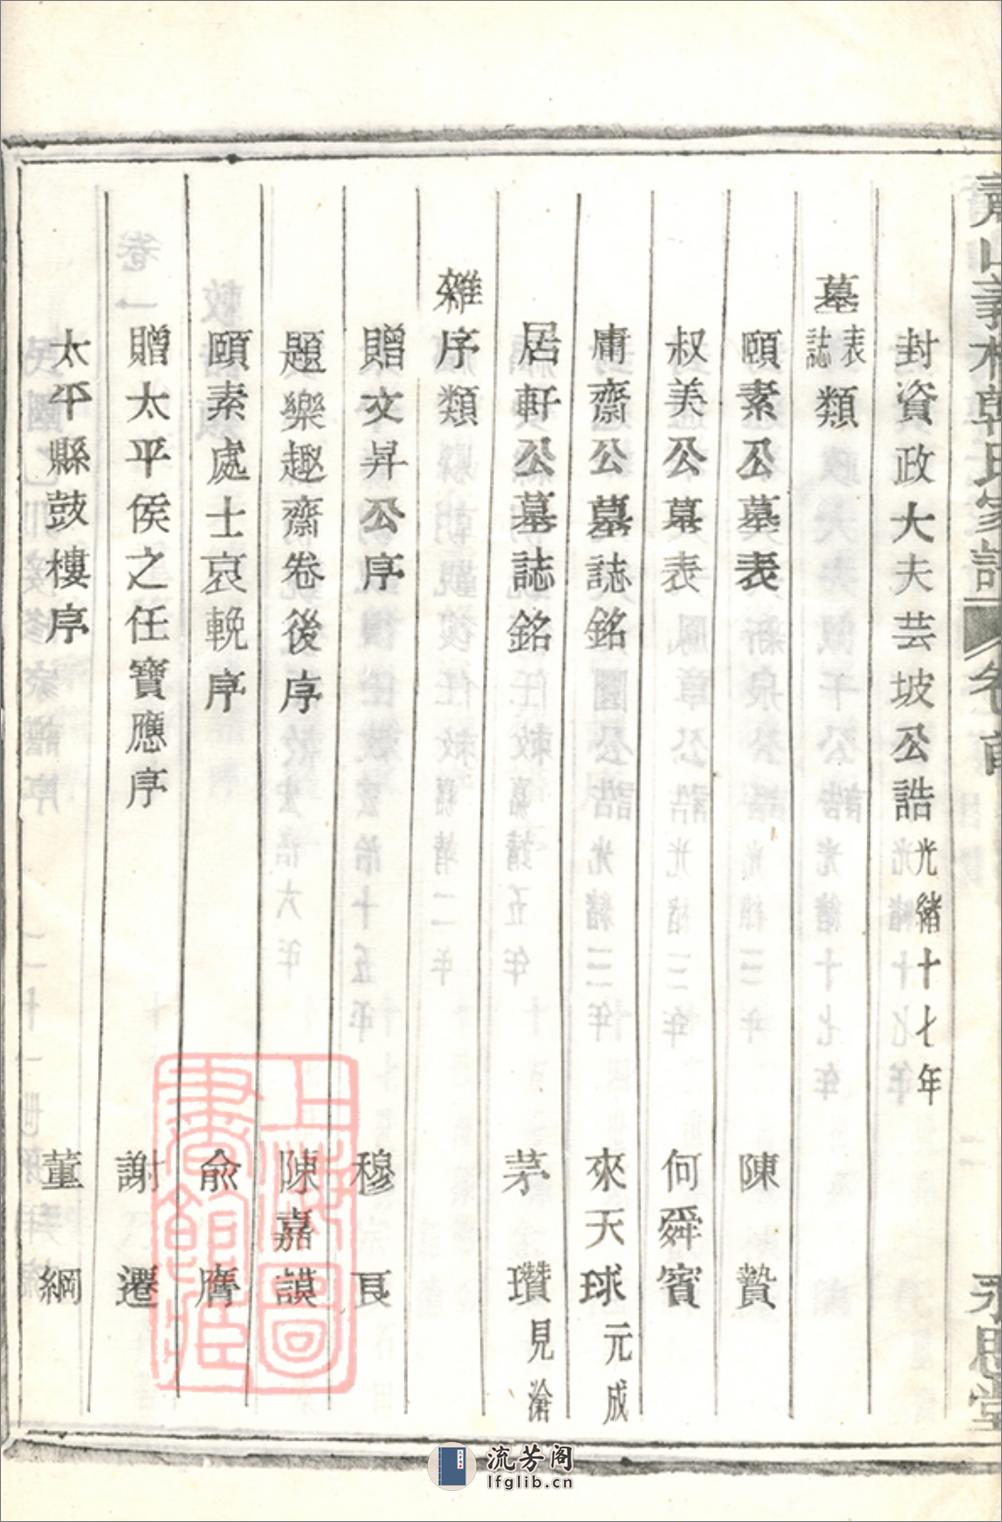 封資政大夫芸坡公誥光緒十七年
墓表誌類
頤素公墓表 陳贄
叔美公墓表 何舜賓
庸齋公墓誌銘 來天球元成
居軒公墓誌銘 茅瓚見滄
雜序類
贈文昇公序 穆㒰
題樂趣齋卷後序 陳嘉謨
頤素處士哀輓序 俞膺
贈太平侯之任寶應序 謝遷
太平縣鼓樓序 董綱
永思堂
上海圖書館藏
流芳阁
lfglib.cn